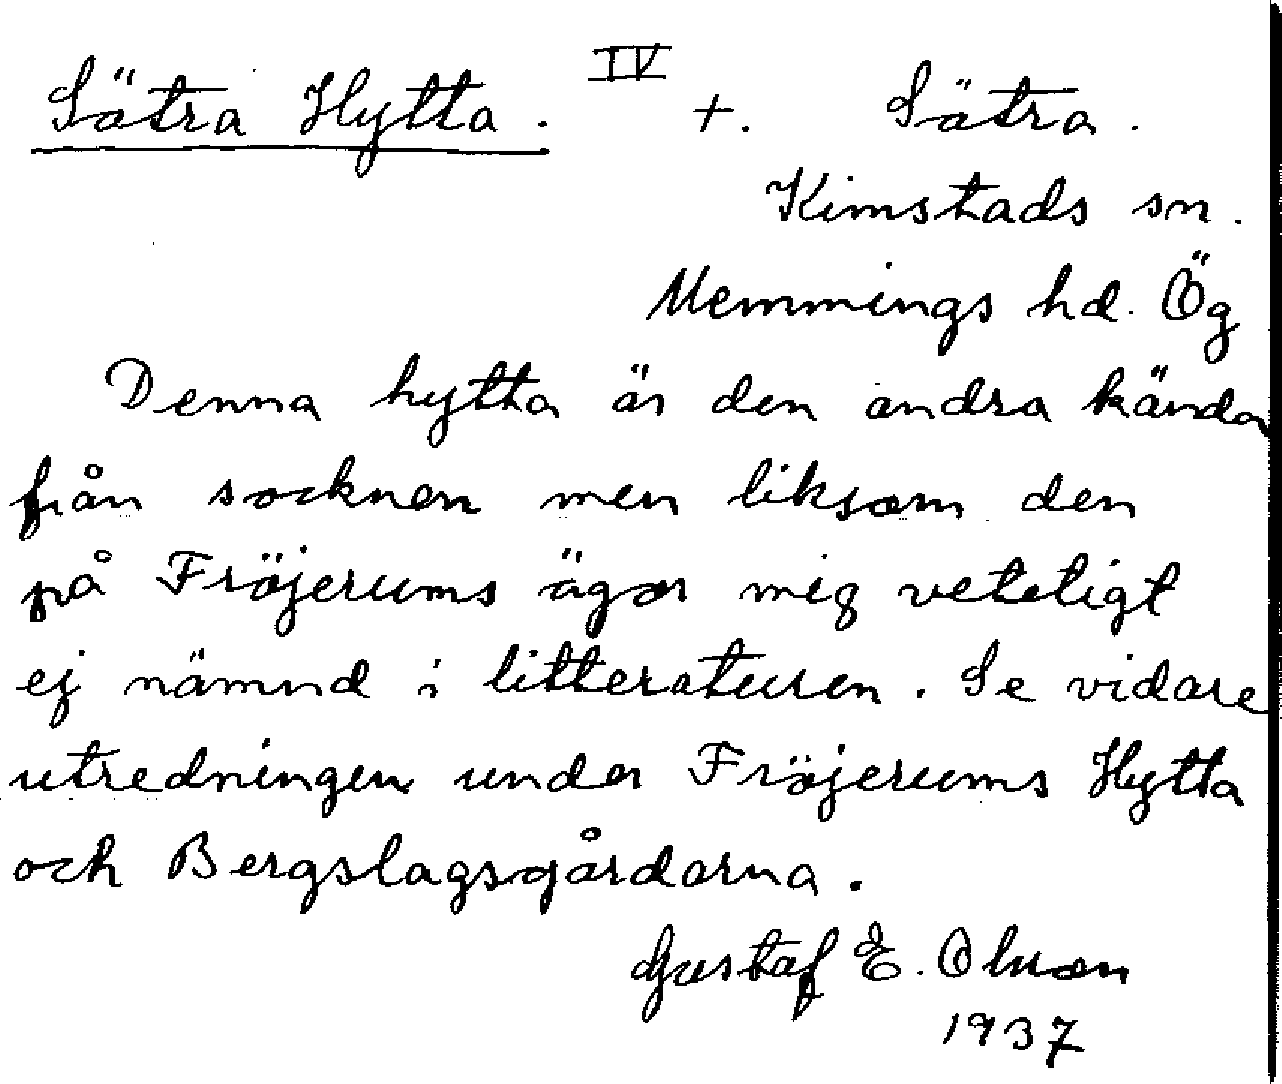 Sätra Hytta. IV +. Sätra.
Kimstads sn.
Memmings hd. Ög
Denna hytta är den andra kända
från socknen men liksom den
på Fröjerums ägor mig veteligt
ej nämnd i litteraturen. Se vidare
utredningen under Fröjerums Hytta
och Bergslagsgårdarna.
Gustaf E. Olsson
1937